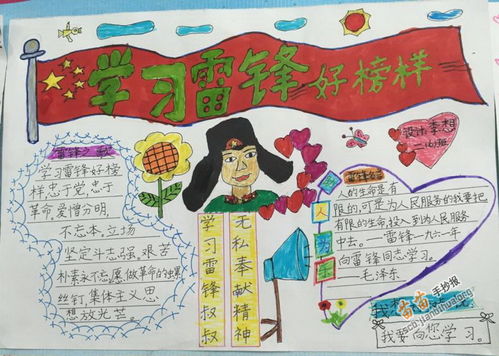 学习雷锋好榜样
设计:李想
一(6)班
雷锋之歌
学习雷锋好榜
样忠于党忠于
革命爱憎方明,
不忘本,立场
坚定斗志强,艰苦
朴素永不忘愿做革命的虫累
丝钉,集体主义思
想放光芒。
学习雷锋叔叔
无私奉献精神
助人为乐
人的生命是有
限的,可是为人民服务的我要把
有限的生命,投入到为人民服务
中去。—雷锋一九六一年
向雷锋同志学习。
—毛泽东
我想
手抄报
我要向您学习。